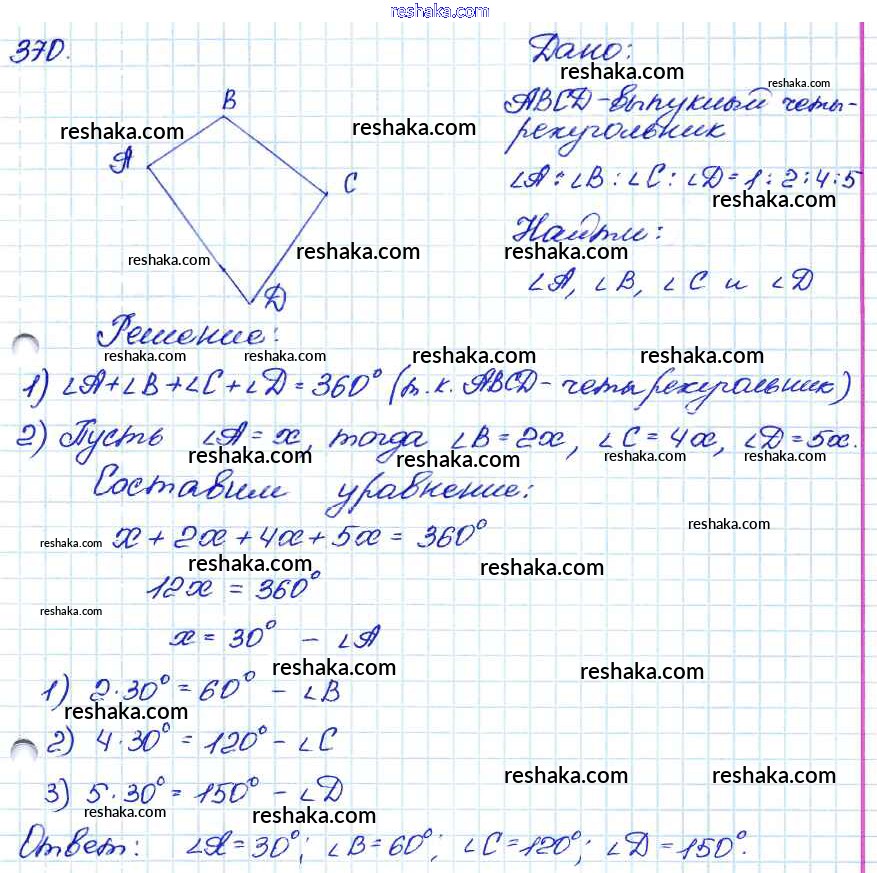 reshaka.com
370.
Дано:
reshaka.com
reshaka.com
ABCD - выпуклый четы-
рехугольник
B
reshaka.com
reshaka.com
A
C
∠A : ∠B : ∠C : ∠D = 1 : 2 : 4 : 5
reshaka.com
Найти:
reshaka.com
reshaka.com
reshaka.com
∠A, ∠B, ∠C и ∠D
D
Решение:
reshaka.com
reshaka.com
reshaka.com
reshaka.com
1) ∠A + ∠B + ∠C + ∠D = 360° (т.к. ABCD - четырехугольник)
2) Пусть ∠A = x, тогда ∠B = 2x, ∠C = 4x, ∠D = 5x.
reshaka.com
reshaka.com
reshaka.com
reshaka.com
Составим уравнение:
reshaka.com
x + 2x + 4x + 5x = 360°
reshaka.com
reshaka.com
reshaka.com
12x = 360°
reshaka.com
x = 30° - ∠A
reshaka.com
reshaka.com
1) 2·30° = 60° - ∠B
reshaka.com
2) 4·30° = 120° - ∠C
reshaka.com
reshaka.com
3) 5·30° = 150° - ∠D
reshaka.com
reshaka.com
Ответ: ∠A = 30°; ∠B = 60°; ∠C = 120°; ∠D = 150°.